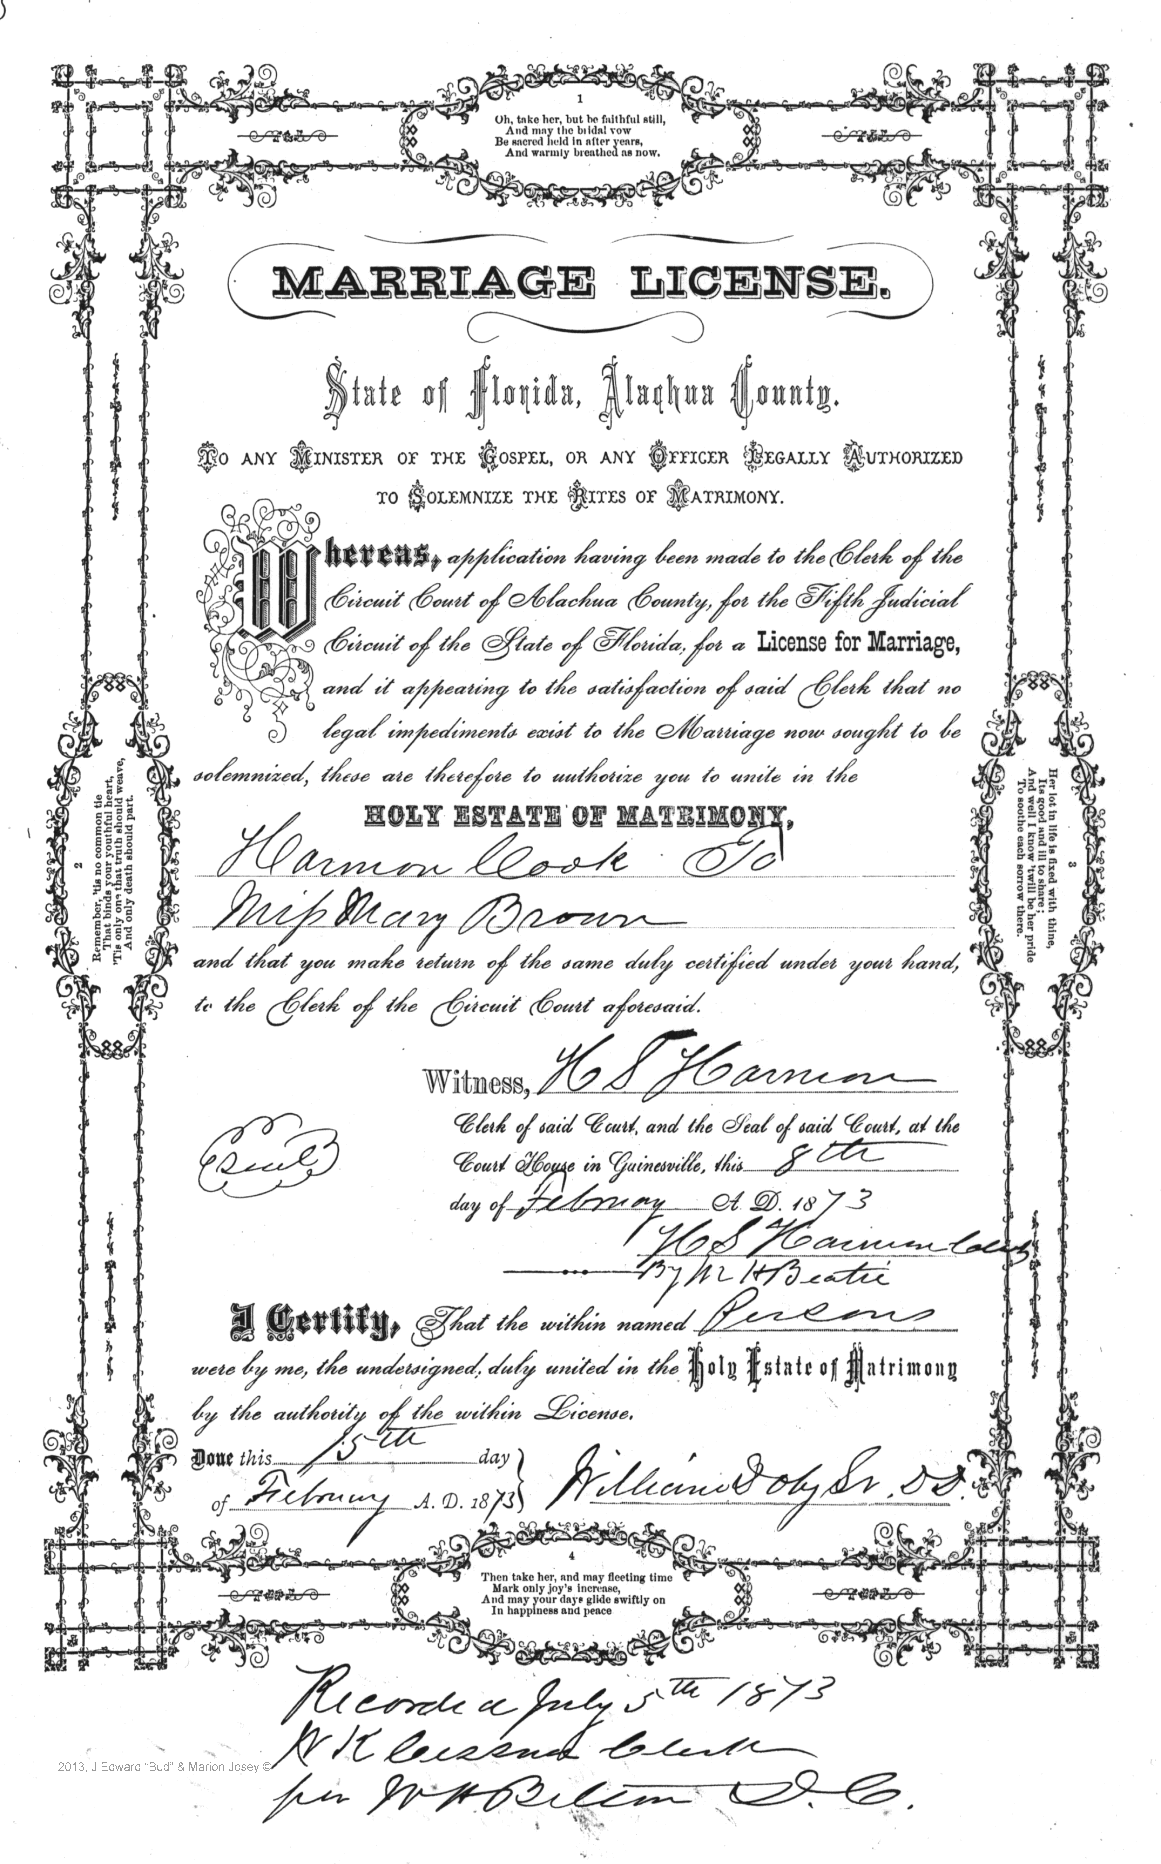 1
Oh, take her, but be faithful still,
And may the bridal vow
Be sacred held in after years,
And warmly breathed as now.
MARRIAGE LICENSE.
State of Florida, Alachua County.
TO ANY MINISTER OF THE GOSPEL, OR ANY OFFICER LEGALLY AUTHORIZED
TO SOLEMNIZE THE RITES OF MATRIMONY.
Whereas, application having been made to the Clerk of the
Circuit Court of Alachua County, for the Fifth Judicial
Circuit of the State of Florida, for a License for Marriage,
and it appearing to the satisfaction of said Clerk that no
legal impediments exist to the Marriage now sought to be
solemnized, these are therefore to authorize you to unite in the
HOLY ESTATE OF MATRIMONY,
Harmon Cook To
Miss Mary Brown
and that you make return of the same duly certified under your hand,
to the Clerk of the Circuit Court aforesaid.
2
Remember, 'tis no common tie
That binds your youthful heart,
'Tis only one that truth should weave,
And only death should part.
3
Her lot in life is fixed with thine,
Its good and ill to share;
And well I know 'twill be her pride
To soothe each sorrow there.
Witness, H S Harmon
Clerk of said Court, and the Seal of said Court, at the
Court House in Gainesville, this 8th
day of February A. D. 1873
Seal
H S Harmon Clerk
By W H Beatie
I Certify, That the within named Persons
were by me, the undersigned, duly united in the Holy Estate of Matrimony
by the authority of the within License.
Done this 15th day
of February A. D. 1873
William Doby Sr. D D.
4
Then take her, and may fleeting time
Mark only joy's increase,
And may your days glide swiftly on
In happiness and peace
Recorded July 5th 1873
Clerk
2013, J Edward "Bud" & Marion Josey ©
per W H Belton D. C.